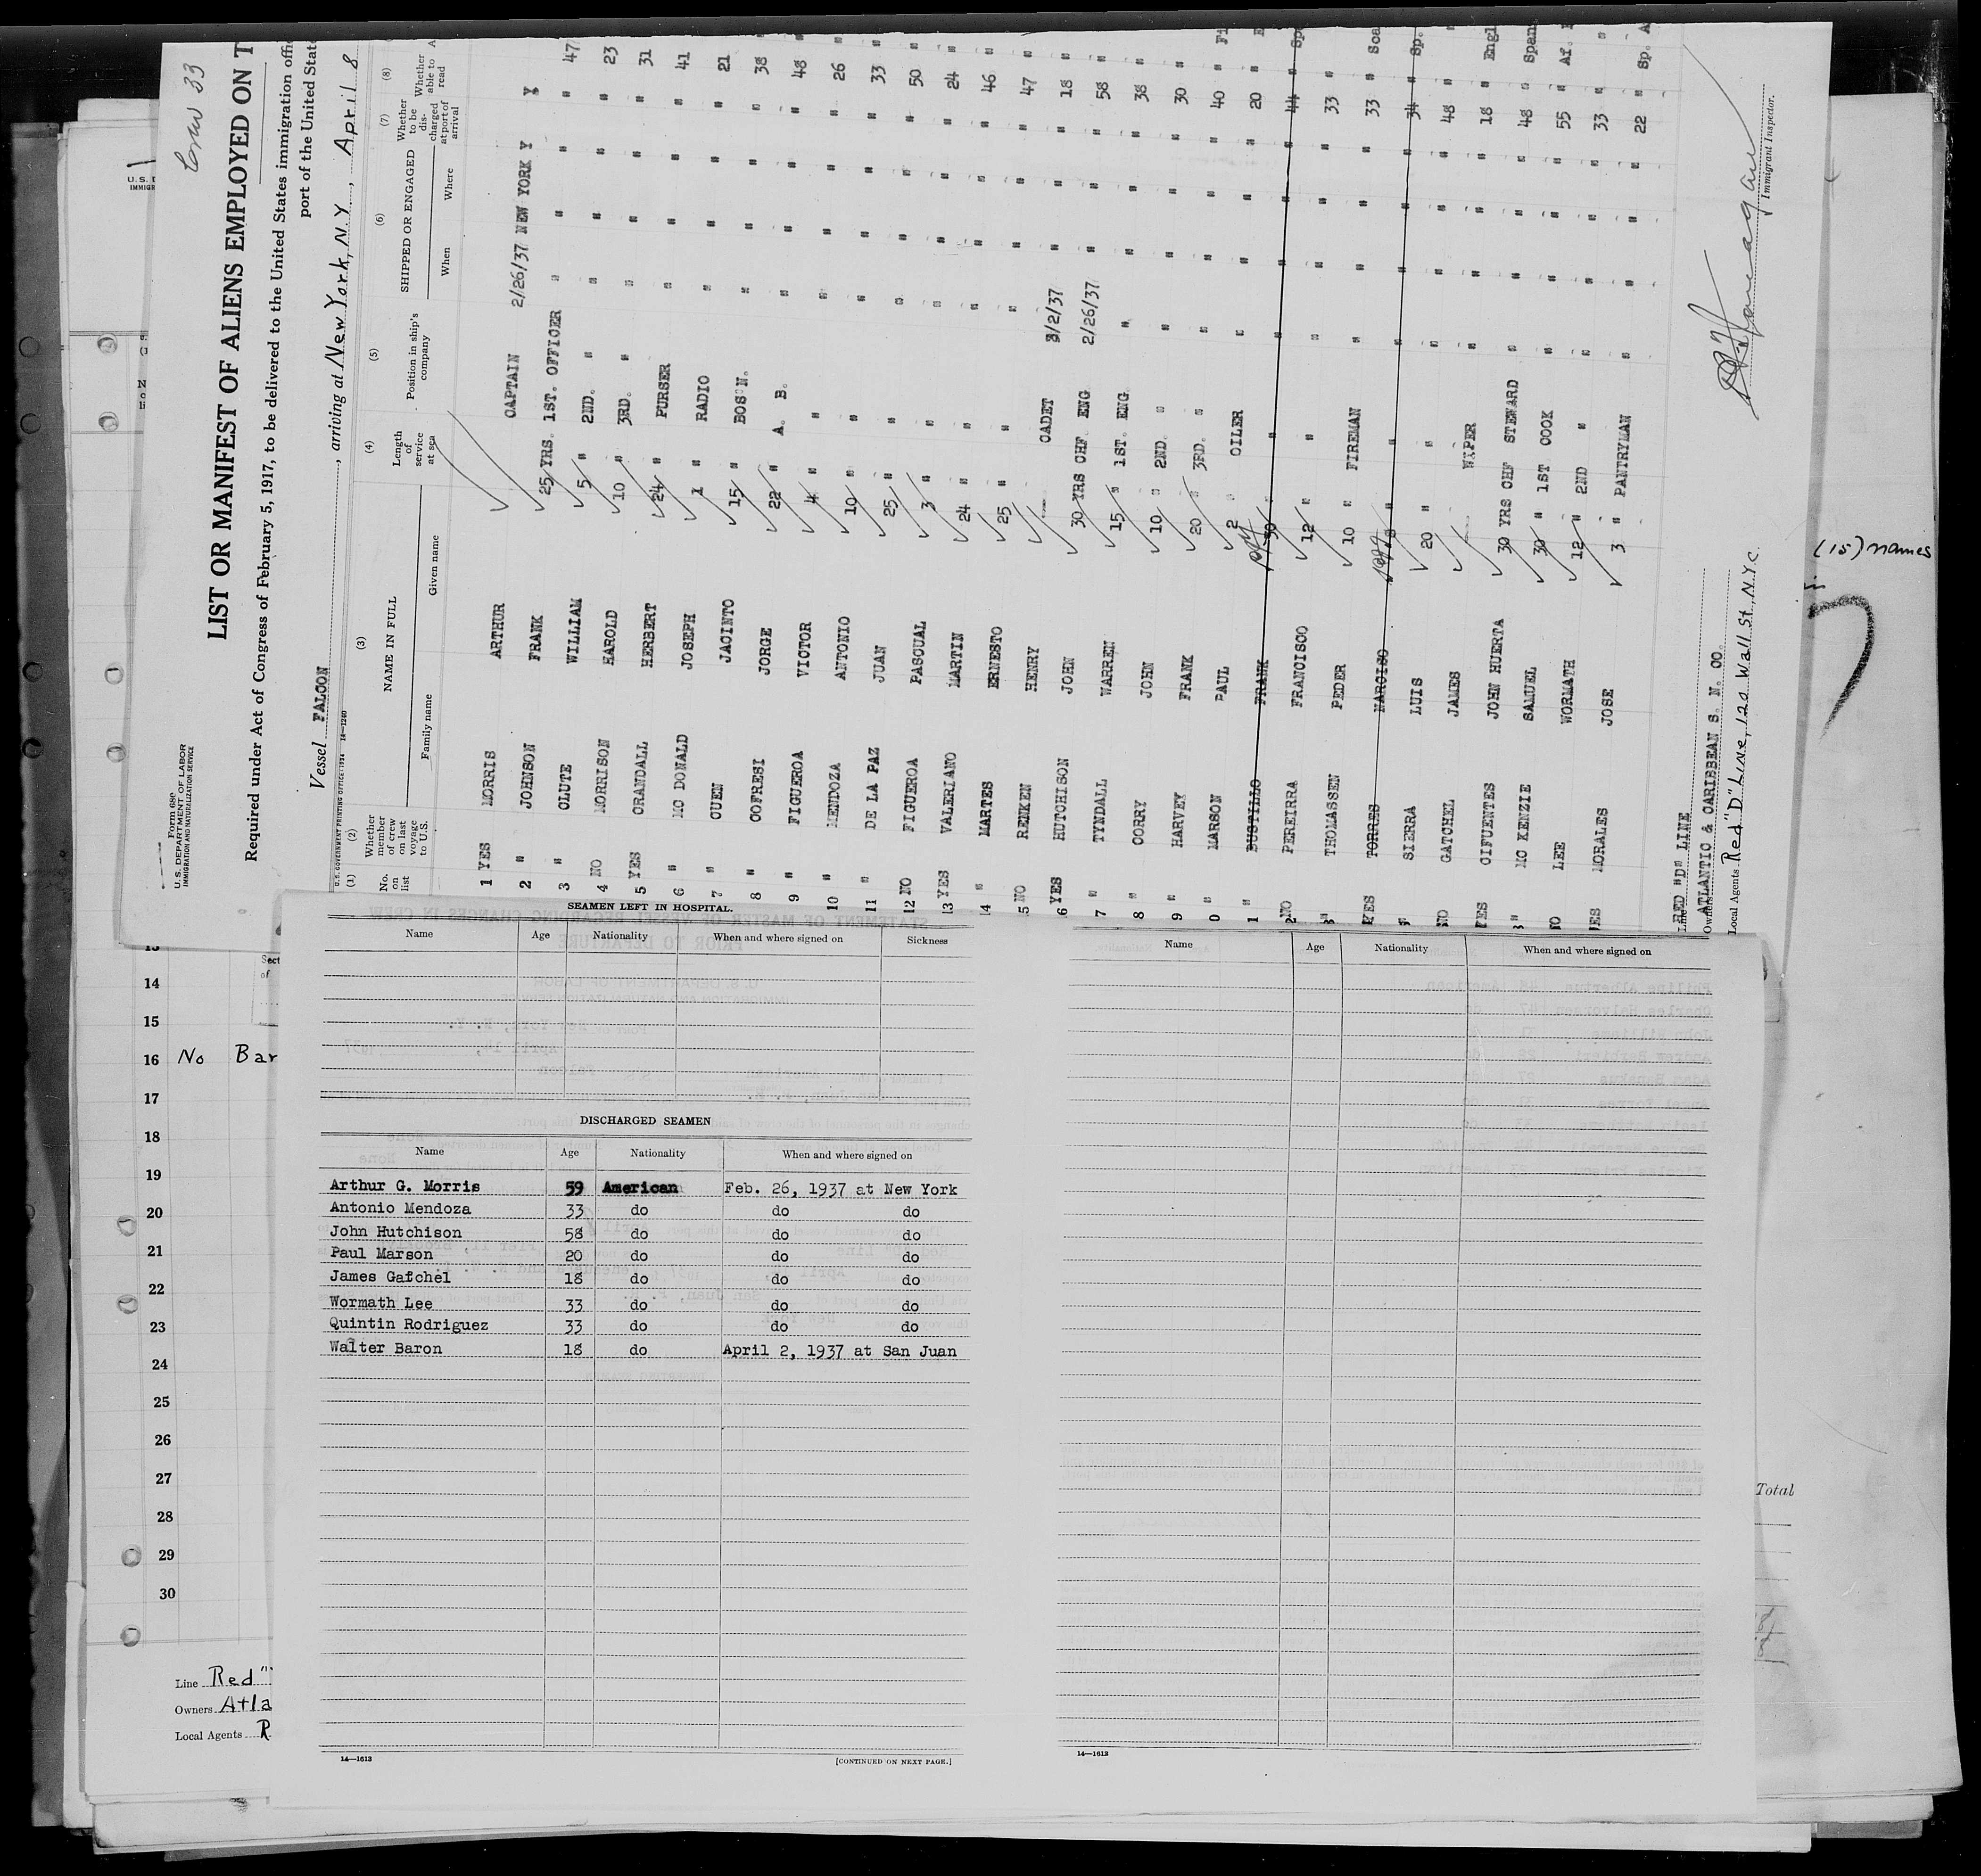 Crew 33
Form 680
U. S. DEPARTMENT OF LABOR
IMMIGRATION AND NATURALIZATION SERVICE
LIST OR MANIFEST OF ALIENS EMPLOYED ON T
Required under Act of Congress of February 5, 1917, to be delivered to the United States immigration offic
port of the United Stat
Vessel FALCON, arriving at New York, N.Y., April 8
U.S. GOVERNMENT PRINTING OFFICE: 1934 14—1240
(1) (2) (3) (4) (5) (6) (7) (8)
No. on list
Whether member of crew on last voyage to U.S.
NAME IN FULL
Family name Given name
Length of service at sea
Position in ship's company
SHIPPED OR ENGAGED
When Where
Whether to be discharged at port of arrival
Whether able to read
A
1 YES MORRIS ARTHUR CAPTAIN 2/26/37 NEW YORK Y Y
2 " JOHNSON FRANK 25 YRS. 1ST. OFFICER " " " 47
3 " CLUTE WILLIAM 5 " 2ND. " " " " 23
4 NO MORRISON HAROLD 10 " 3RD. " " " " 31
5 YES CRANDALL HERBERT 24 " PURSER " " " 41
6 " MC DONALD JOSEPH 1 " RADIO " " " 21
7 " CUEN JACINTO 15 " BOS'N. " " " 38
8 " COFRESI JORGE 22 " A. B. " " " 48
9 " FIGUEROA VICTOR 4 " " " " " 26
10 " MENDOZA ANTONIO 10 " " " " " 33
11 " DE LA PAZ JUAN 25 " " " " " 50
12 NO FIGUEROA PASQUAL 3 " " " " " 24
13 YES VALERIANO MARTIN 24 " " " " " 46
14 " MARTES ERNESTO 25 " " " " " 47
5 NO RENKEN HENRY CADET 3/2/37 " " 18
6 YES HUTCHISON JOHN 30 YRS CHF. ENG 2/26/37 " " 58
7 " TYNDALL WARREN 15 " 1ST. ENG. " " " 38
8 " CORRY JOHN 10 " 2ND. " " " " 30
9 " HARVEY FRANK 20 " 3RD. " " " " 40 Fi
0 " MARSON PAUL 2 " OILER " " " 20
1 " BUSTILLO FRANK 30 " " " " " 44 Sp
NO PEREIRRA FRANCISCO 12 " " " " " 33
3 " THOMASSEN PEDER 10 " FIREMAN " " " 33 Sca
YES TORRES NARCISO 8 " " " " " 34 Sp.
" SIERRA LUIS 20 " " " " " 48
NO GATCHEL JAMES WIPER " " " 18 Engl
YES CIFUENTES JOHN HUERTA 30 YRS CHF STEWARD " " " 48 Span
" MC KENZIE SAMUEL 30 " 1ST COOK " " " 55 Af.
NO LEE WORMATH 12 " 2ND " " " " 33 "
YES MORALES JOSE 3 " PANTRYMAN " " " 22 Sp. A
Line RED "D" LINE
Owners ATLANTIC & CARIBBEAN S. N. CO.
Local Agents Red "D" Line, 120 Wall St. N.Y.C.
Immigrant Inspector.
(15) names
14
15
16 No Bar
17
18
19
20
21
22
23
24
25
26
27
28
29
30
Line Red "
Owners Atla
Local Agents R
Total
SEAMEN LEFT IN HOSPITAL.
Name Age Nationality When and where signed on Sickness
DISCHARGED SEAMEN
Name Age Nationality When and where signed on
Arthur G. Morris 59 American Feb. 26, 1937 at New York
Antonio Mendoza 33 do do do
John Hutchison 58 do do do
Paul Marson 20 do do do
James Gatchel 18 do do do
Wormath Lee 33 do do do
Quintin Rodriguez 33 do do do
Walter Baron 18 do April 2, 1937 at San Juan
14—1613 [CONTINUED ON NEXT PAGE.]
Name Age Nationality When and where signed on
14—1613